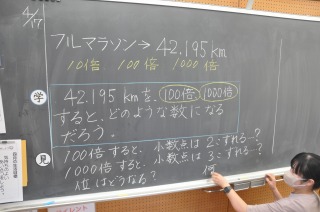 4/17
フルマラソン→ 42.195 km
10倍 100倍 1000倍
学
42.195 kmを、100倍、1000倍
すると、どのような数になる
だろう。
見
100倍すると、小数点は2つずれる…?
1000倍すると、小数点は3つずれる…?
位はどうなる?